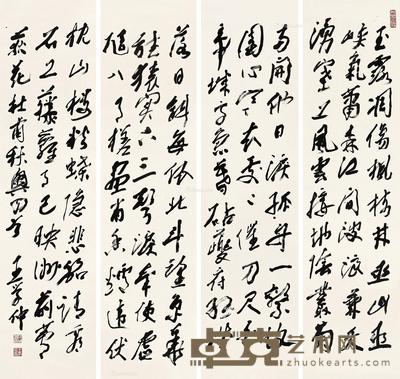 玉露凋傷楓樹林巫山巫
峽氣蕭森江間波浪兼天
湧塞上風雲接地陰叢菊
兩開他日淚孤舟一繫故
園心寒衣處處催刀尺白
帝城高急暮砧夔府孤城
落日斜每依北斗望京華
聽猿實下三聲淚奉使虛
隨八月槎畫省香爐違伏
枕山樓粉蝶隱悲笳請看
石上藤蘿月已映洲前蘆
荻花杜甫秋興四首 王學仲